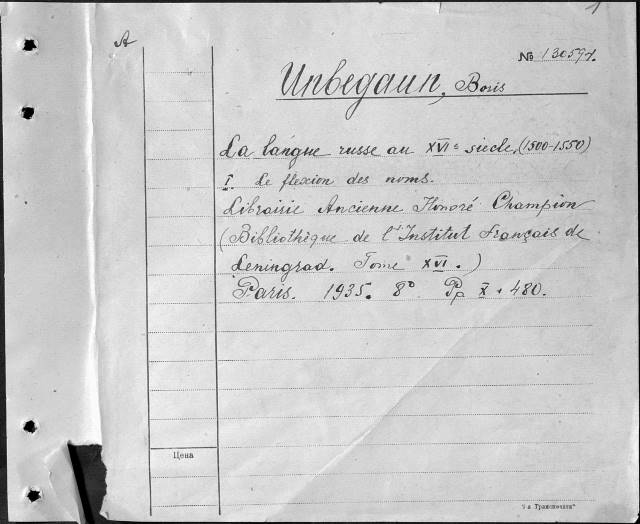 A
№ 130597.
Unbegaun, Boris
La langue russe au XVIe siècle, (1500-1550)
I. Le flexion des noms.
Librairie Ancienne Honoré Champion
(Bibliothèque de l'Institut Français de
Leningrad. Tome XVI.)
Paris. 1935. 8° Pp X + 480.
Цена